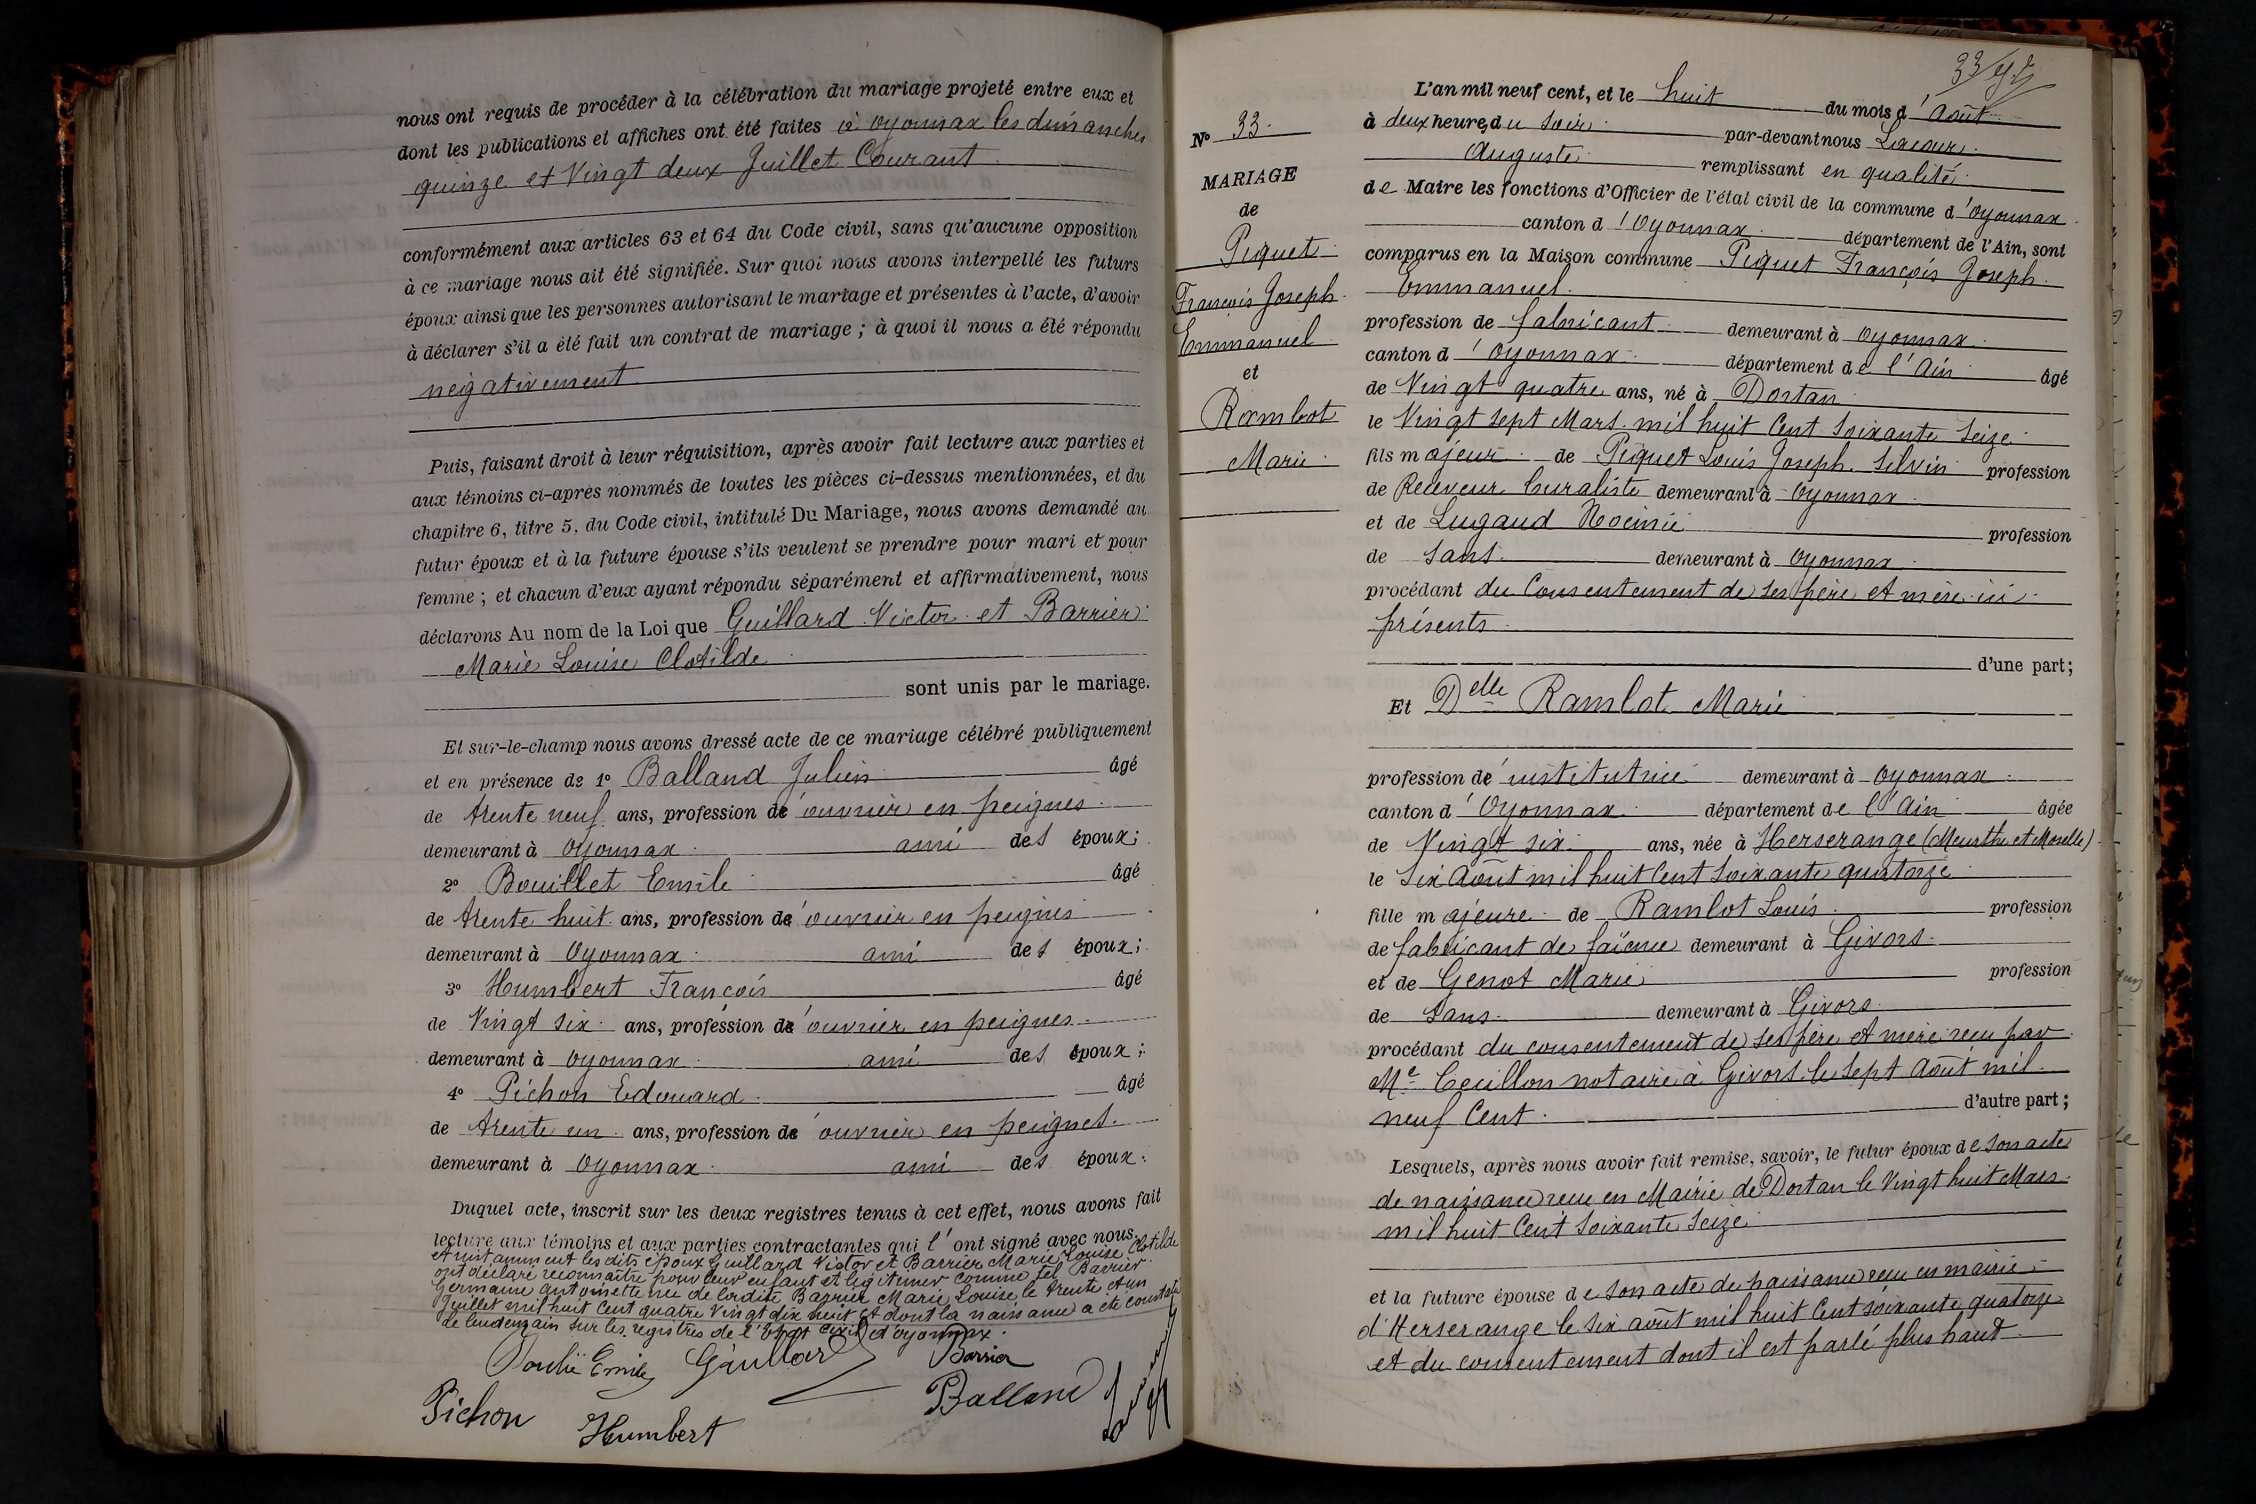 nous ont requis de procéder à la célébration du mariage projeté entre eux et
dont les publications et affiches ont été faites à Oyonnax les dimanches
quinze et Vingt deux Juillet Courant
conformément aux articles 63 et 64 du Code civil, sans qu'aucune opposition
à ce mariage nous ait été signifiée. Sur quoi nous avons interpellé les futurs
époux ainsi que les personnes autorisant le mariage et présentes à l'acte, d'avoir
à déclarer s'il a été fait un contrat de mariage ; à quoi il nous a été répondu
négativement
Puis, faisant droit à leur réquisition, après avoir fait lecture aux parties et
aux témoins ci-après nommés de toutes les pièces ci-dessus mentionnées, et du
chapitre 6, titre 5, du Code civil, intitulé Du Mariage, nous avons demandé au
futur époux et à la future épouse s'ils veulent se prendre pour mari et pour
femme ; et chacun d'eux ayant répondu séparément et affirmativement, nous
déclarons Au nom de la Loi que Guillard Victor et Barrier
Marie Louise Clotilde
sont unis par le mariage.
Et sur-le-champ nous avons dressé acte de ce mariage célébré publiquement
et en présence de 1° Balland Julien âgé
de trente neuf ans, profession d'ouvrier en peignes
demeurant à Oyonnax ami des époux ;
2° Bouillet Emile âgé
de trente huit ans, profession d'ouvrier en peignes
demeurant à Oyonnax ami des époux ;
3° Humbert François âgé
de Vingt six ans, profession d'ouvrier en peignes
demeurant à Oyonnax ami des époux ;
4° Pichon Edouard âgé
de trente un ans, profession d'ouvrier en peignes
demeurant à Oyonnax ami des époux.
Duquel acte, inscrit sur les deux registres tenus à cet effet, nous avons fait
lecture aux témoins et aux parties contractantes qui l'ont signé avec nous.
et instamment les dits époux Guillard Victor et Barrier Marie Louise Clotilde
ont déclaré reconnaître pour leur enfant et légitimer comme tel Barrier
Germaine Antoinette née de ladite Barrier Marie Louise le trente et un
Juillet mil huit Cent quatre Vingt dix neuf et dont la naissance a été constatée
le lendemain sur les registres de l'Etat Civil d'Oyonnax.
Emile Guillard Barrier
Pichon Humbert Balland
33
N° 33.
MARIAGE
de
Piquet
François Joseph
Emmanuel
et
Rambot
Marie
L'an mil neuf cent, et le huit du mois d'Août
à deux heures du soir par-devant nous Lacour
Auguste remplissant en qualité
de Maire les fonctions d'Officier de l'état civil de la commune d'Oyonnax
canton d'Oyonnax département de l'Ain, sont
comparus en la Maison commune Piquet François Joseph
Emmanuel
profession de fabricant demeurant à Oyonnax
canton d'Oyonnax département de l'Ain âgé
de Vingt quatre ans, né à Dortan
le Vingt sept Mars mil huit Cent Soixante Seize
fils majeur de Piquet Louis Joseph Silvin profession
de Receveur buraliste demeurant à Oyonnax
et de Lugand Noémie profession
de Sans demeurant à Oyonnax
procédant du Consentement de ses père et mère ici
présents
d'une part ;
Et Delle Rambot Marie
profession d'institutrice demeurant à Oyonnax
canton d'Oyonnax département de l'Ain âgée
de Vingt six ans, née à Herserange (Meurthe et Moselle)
le Six Août mil huit Cent Soixante quatorze
fille majeure de Rambot Louis profession
de fabricant de faïence demeurant à Givors
et de Genot Marie profession
de Sans demeurant à Givors
procédant du consentement de ses père et mère reçu par
Me notaire à Givors le sept Août mil
neuf Cent. d'autre part ;
Lesquels, après nous avoir fait remise, savoir, le futur époux de son acte
de naissance reçu en Mairie de Dortan le Vingt huit Mars
mil huit Cent Soixante Seize
et la future épouse de son acte de naissance reçu en mairie
d'Herserange le six août mil huit Cent soixante quatorze
et du consentement dont il est parlé plus haut